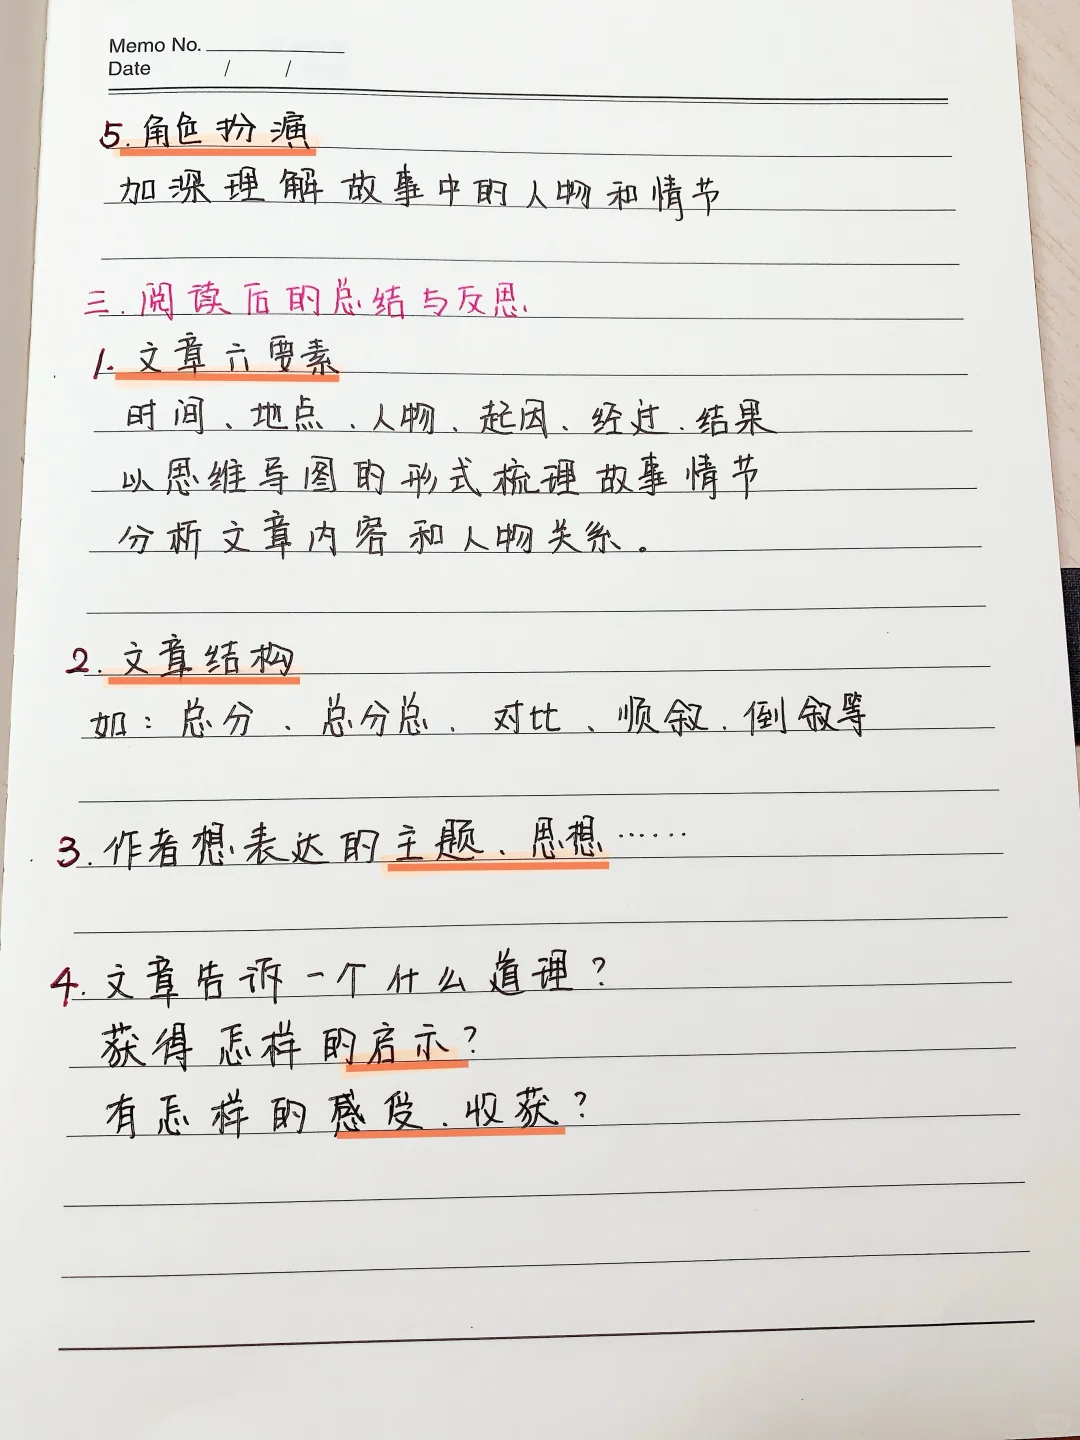 Memo No.
Date / /
5. 角色扮演
加深理解故事中的人物和情节
三.阅读后的总结与反思.
1. 文章六要素
时间、地点、人物、起因、经过、结果
以思维导图的形式梳理故事情节
分析文章内容和人物关系。
2. 文章结构
如：总分、总分总、对比、顺叙、倒叙等
3. 作者想表达的主题、思想······
4. 文章告诉一个什么道理？
获得怎样的启示？
有怎样的感受、收获？